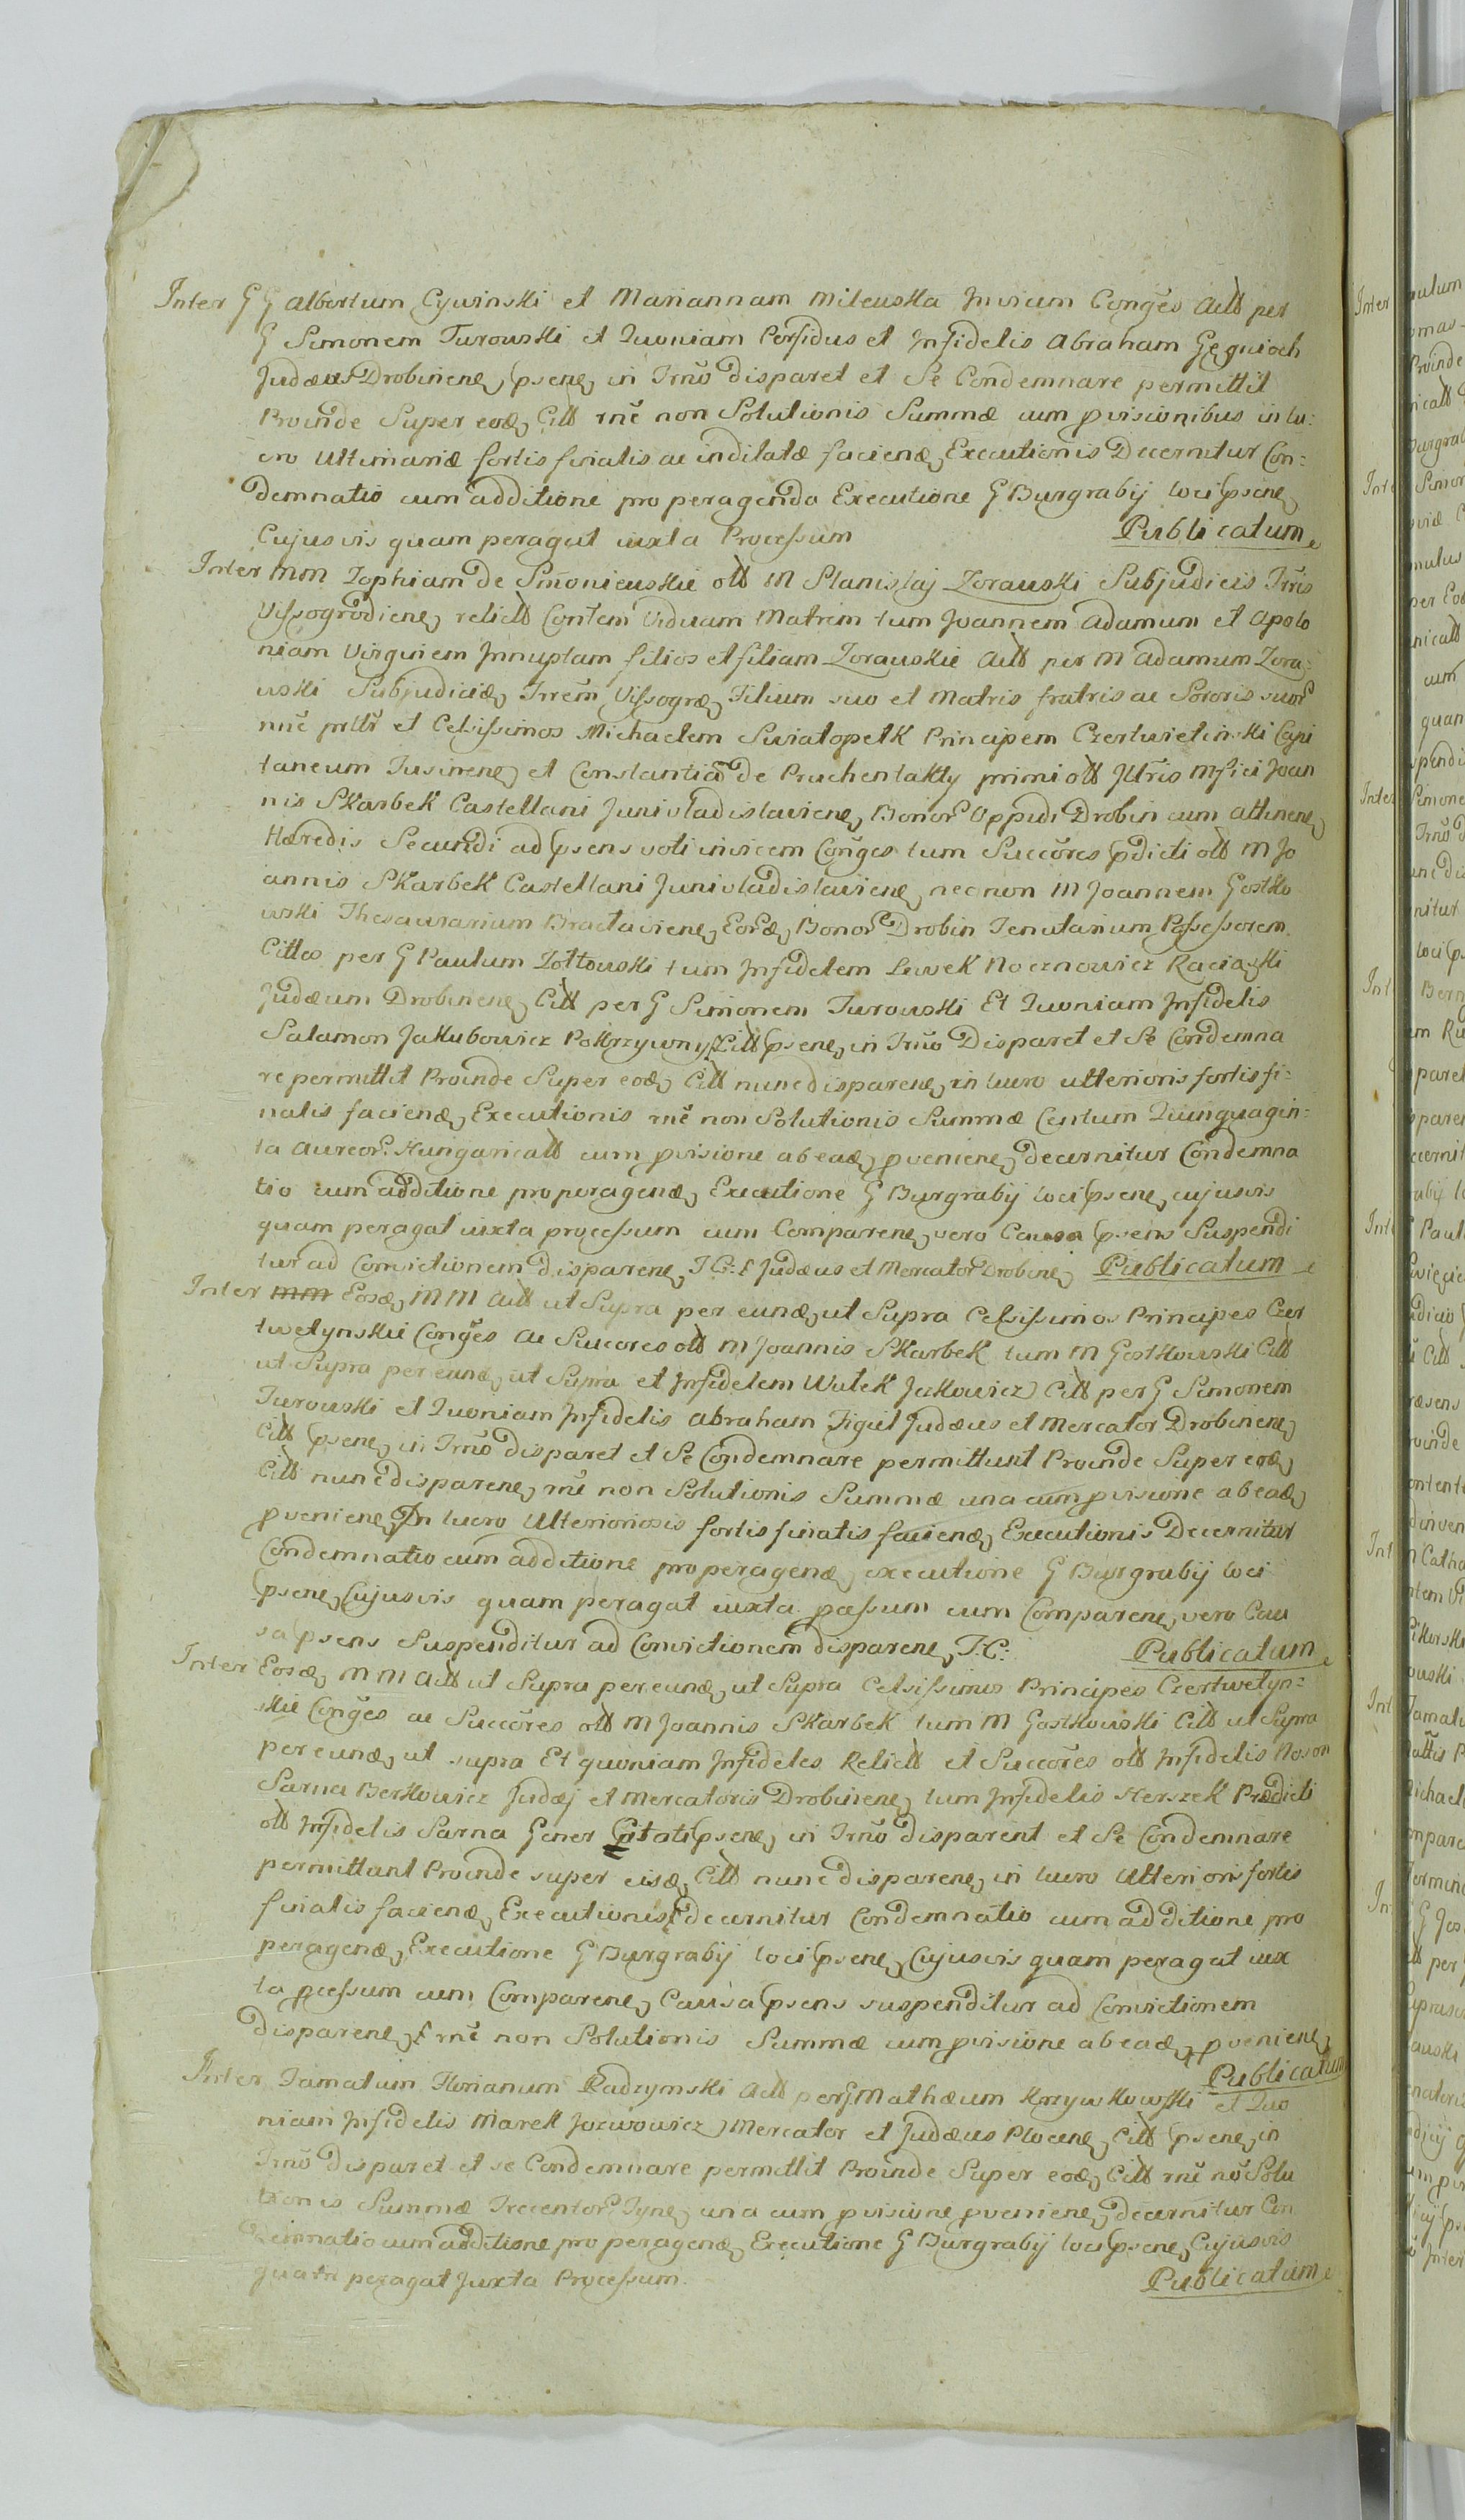 Inter G G Albertum Cywinski et Mariannam Milewska Invicem Conges Actt per
G Simonem Turowski et Quoniam Perfidus et Infidelis Abraham
Judæus Drobinens psens in Trno disparet et Se Condemnare permittit
Proinde Super eod Citt rne non Solutionis Summæ cum pvisionibus in lu:
cro Ultimariæ fortis finalis ac indilatæ faciend Executionis Decernitur Con:
demnatio cum additione pro peragenda Executione G Burgrabij loci psens
Cujusvis quam peragat iuxta Processum Publicatum
Inter MM Zophiam de Smoniewskie ott M Stanislaj Zorawski Subjudicis Trris
Vissogrodiens relictt Contem Viduam Matrem tum Joannem Adamum et Apolo
niam Virginem Innuptam filios et filiam Zorawskie Actt per M Adamum Zora:
wski Subjudicid Trrem Vissogrd Filium suo et Matris fratris ac Sororis suor
nne et Celsissimos Michaelem Swiatopelk Principem Czertwietinski Capi
taneum Tusinens et Constantia de primi ott Jllris Mfici Joan
nis Skarbek Castellani Junivladislaviens Bonor Oppidi Drobin cum attinens
Hæredis Secundi ad psens voti invicem Conges tum Succores pdicti ott M Jo
annis Skarbek Castellani Junivladislaviens necnon M Joannem Gostko
wski Thesaurarium Braclaviens Eord Bonor Drobin Tenutarium Possessorem
Cittos per G Paulum Zołtowski tum Infidelem Lewek Racia
Judæum Drobinens Citt per G Simonem Turowski Et Quoniam Infidelis
Salamon Jakubowicz Pokrzywny Citt psens in Trno Disparet et Se Condemna
re permittit Proinde Super eod Citt nunc disparens in lucro ulterioris fortis fi:
nalis faciend Executionis rne non Solutionis Summæ Centum Quinquagin:
ta Aureor Hungaricatt cum pvisione ab ead pveniens decernitur Condemna
tio cum additione pro peragend Executione G Burgrabij loci psens cujusvis
quam peragat iuxta processum cum Comparens vero Causa psens Suspendi
tur ad Convictionem disparens J C: Judæus et Mercator Drobins Publicatum
Inter Eosd MM Actt ut Supra per eund ut Supra Celsissimos Principes Czer
twetynskie Conges ac Succores ott M Joannis Skarbek tum M Gostkowski Citt
ut Supra per eund ut Supra et Infidelem Wulek Jakowicz Citt per G Simonem
Turowski et Quoniam Infidelis Abraham Figiel Judæus et Mercator Drobinens
Citt psens in Trno disparet et Se Condemnare permittunt Proinde Super eod
Citt nunc disparens rne non Solutionis Summæ una cum pvisione ab ead
pveniens In lucro Ulterioriosis fortis finalis faciend Executionis Decernitur
Condemnatio cum additione pro peragend executione G Burgrabij loci
psens Cujusvis quam peragat iuxta pcessum cum Comparens vero Cau
sa psens Suspenditur ad Convictionem disparens J. C: Publicatum
Inter Eosd MM Actt ut Supra per eund ut Supra Celsissimos Principes Czertwetyn:
skie Conges ac Succores ott M Joannis Skarbek tum M Gostkowski Citt ut Supra
per eund ut supra Et quoniam Infideles Relictt et Succores ott Infidelis Noson
Sarna Berkowicz Judæj et Mercatoris Drobinens tum Infidelis Herszek Prædicti
ott Infidelis Sarna Gener Citati psens in Trno disparent et Se Condemnare
permittant Proinde super eisd Citt nunc disparens in lucro Ulterioris fortis
finalis faciend Executionis decernitur Condemnatio cum additione pro
peragend Executione G Burgrabij loci psens Cujusvis quam peragat iux
ta pcessum cum Comparens Causa psens suspenditur ad Convictionem
disparens rne non Solutionis Summæ cum pvisione ab ead pveniens
Publicatum
Inter Famatum Florianum Radzymski Actt per G Mathæum Krzywkowski et Quo
niam Infidelis Marek Joxwowicz Mercator et Judæus Plocens Citt psens in
Trno disparet et se Condemnare permittit Proinde Super eod Citt rne no Solu
tionis Summæ Trecentor Tyns una cum pvisione pveniens decernitur Con
demnatio cum additione pro peragend Executione G Burgrabij loci psens Cujusvis
quam peragat Juxta Processum. Publicatum